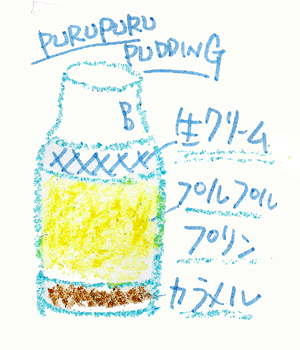 PURUPURU
PUDDING
B
生クリーム
プルプル
プリン
カラメル